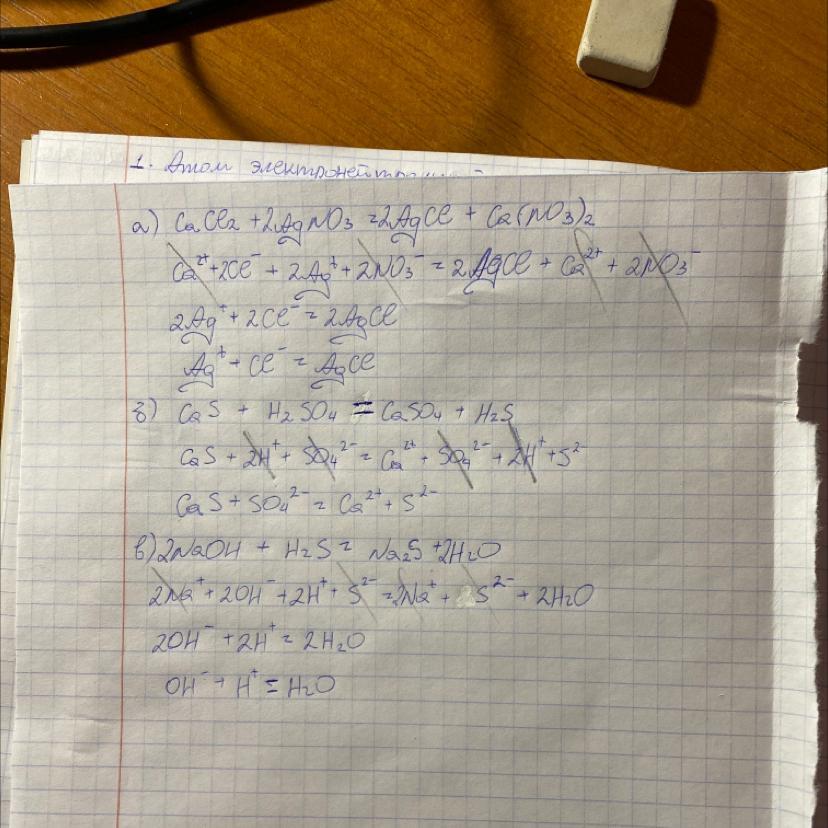 1. Атом электроней
а) CaCl₂ + 2AgNO₃ = 2AgCl + Ca(NO₃)₂
Ca²⁺ + 2Cl⁻ + 2Ag⁺ + 2NO₃⁻ = 2AgCl + Ca²⁺ + 2NO₃⁻
2Ag⁺ + 2Cl⁻ = 2AgCl
Ag⁺ + Cl⁻ = AgCl
б) CaS + H₂SO₄ = CaSO₄ + H₂S
CaS + 2H⁺ + SO₄²⁻ = Ca²⁺ + SO₄²⁻ + 2H⁺ + S²⁻
CaS + SO₄²⁻ = Ca²⁺ + S²⁻
в) 2NaOH + H₂S = Na₂S + 2H₂O
2Na⁺ + 2OH⁻ + 2H⁺ + S²⁻ = 2Na⁺ + S²⁻ + 2H₂O
2OH⁻ + 2H⁺ = 2H₂O
OH⁻ + H⁺ = H₂O